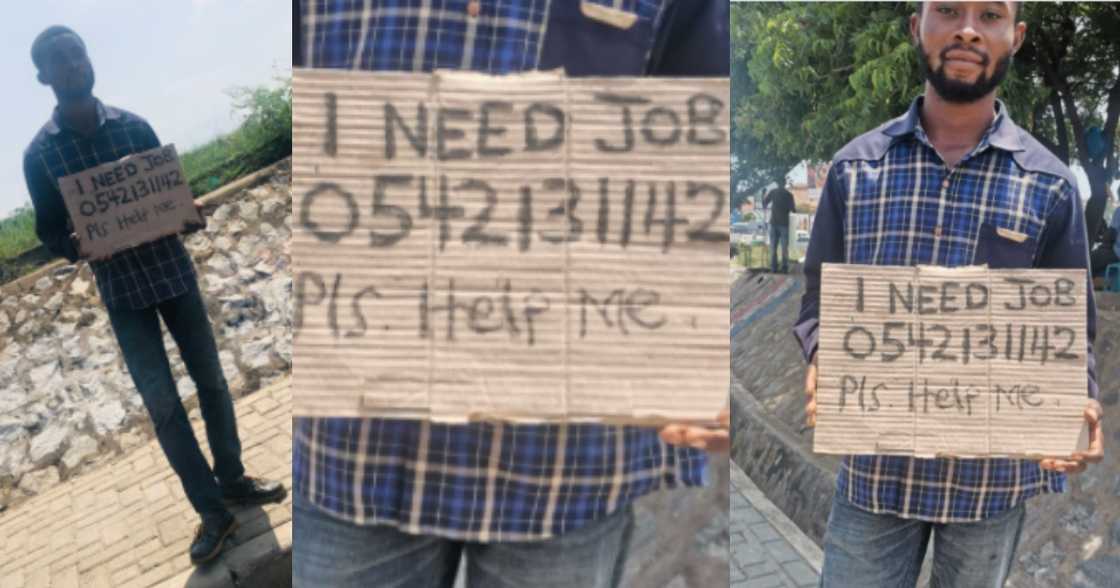 I NEED JOB
0542131142
Pls Help Me.
I NEED JOB
0542131142
Pls. Help Me.
I NEED JOB
0542131142
Pls. Help Me.